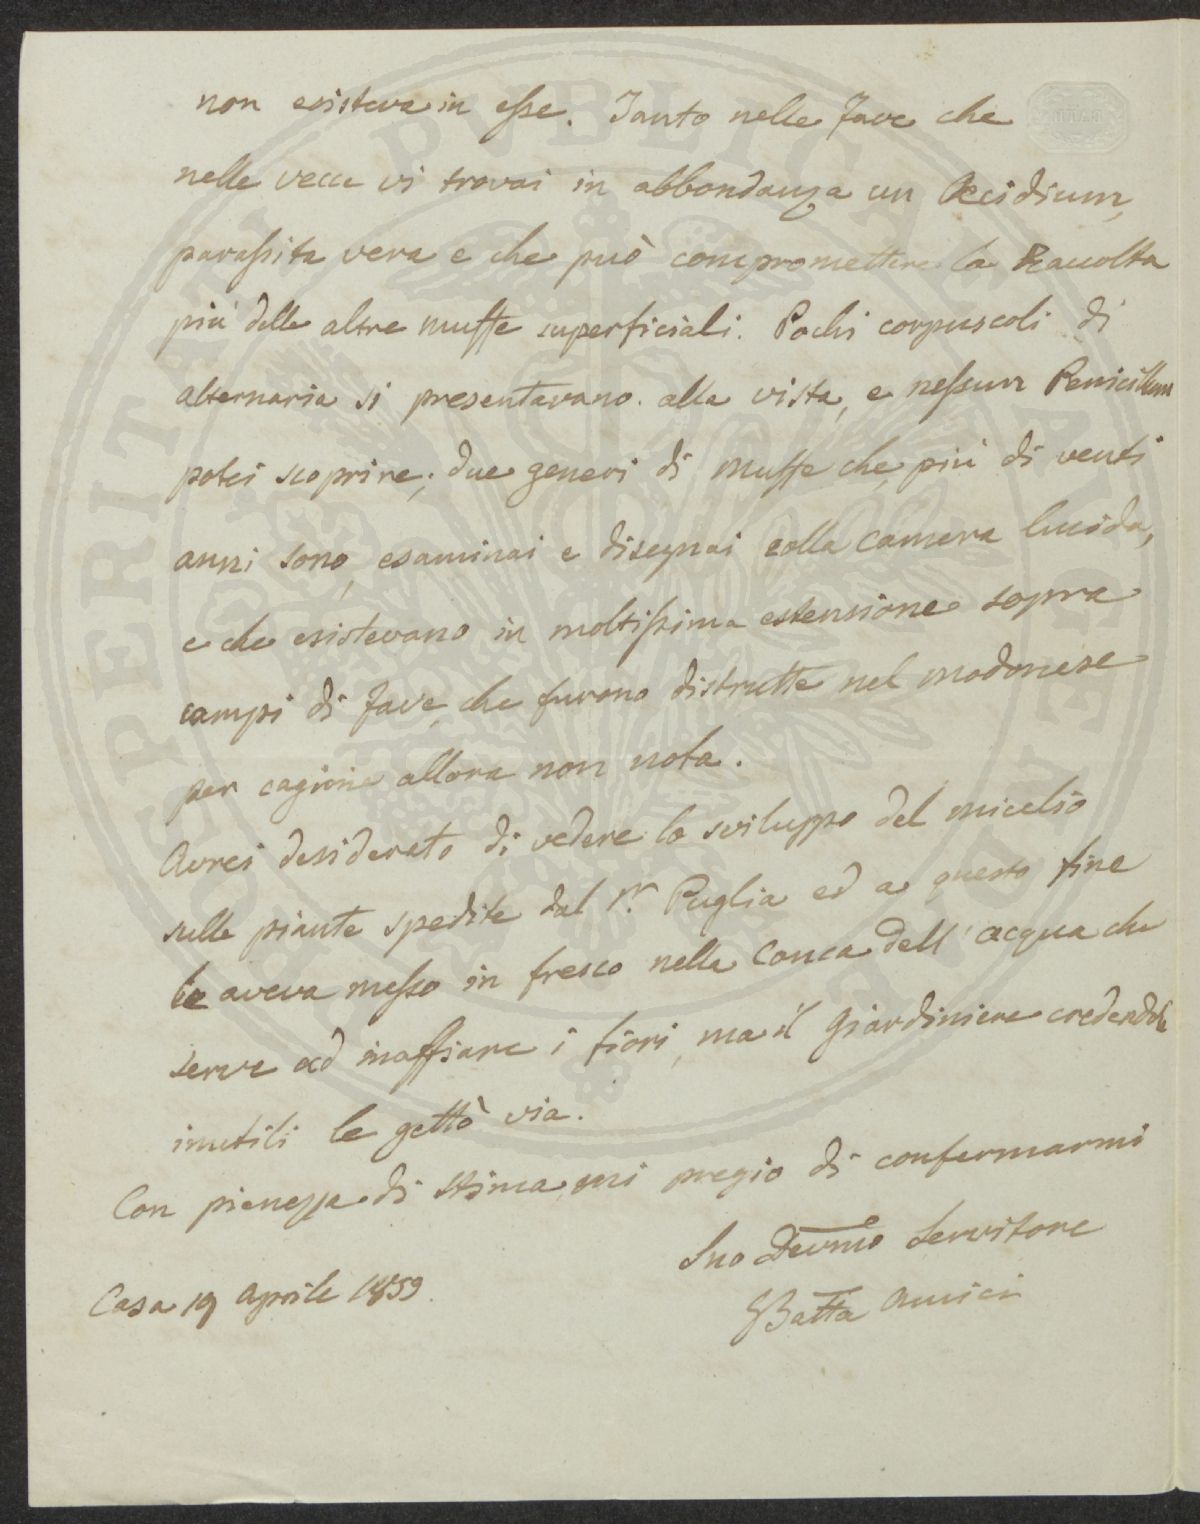 non esisteva in esse. Tanto nelle fave che
nelle vecce vi trovai in abbondanza un Oecidium,
parassita vera e che può compromettere la Raccolta
più delle altre muffe superficiali. Pochi corpuscoli di
alternaria si presentavano alla vista, e nessun Penicillum
potei scoprire; due generi di muffe che più di venti
anni sono, esaminai e disegnai colla camera lucida,
e che esistevano in moltissima estensione sopra
campi di fave che furono distrutte nel modonese
per cagione allora non nota.
Avrei desiderato di vedere lo sviluppo del micelio
sulle piante spedite dal Sr. Puglia ed a questo fine
le aveva messo in fresco nella Conca dell'acqua che
serve ad inaffiare i fiori, ma il Giardiniere credendole
inutili le gettò via.
Con pienezza di stima mi pregio di confermarmi
Suo Devmo Servitore
GBatta Amici
Casa 19 Aprile 1859.